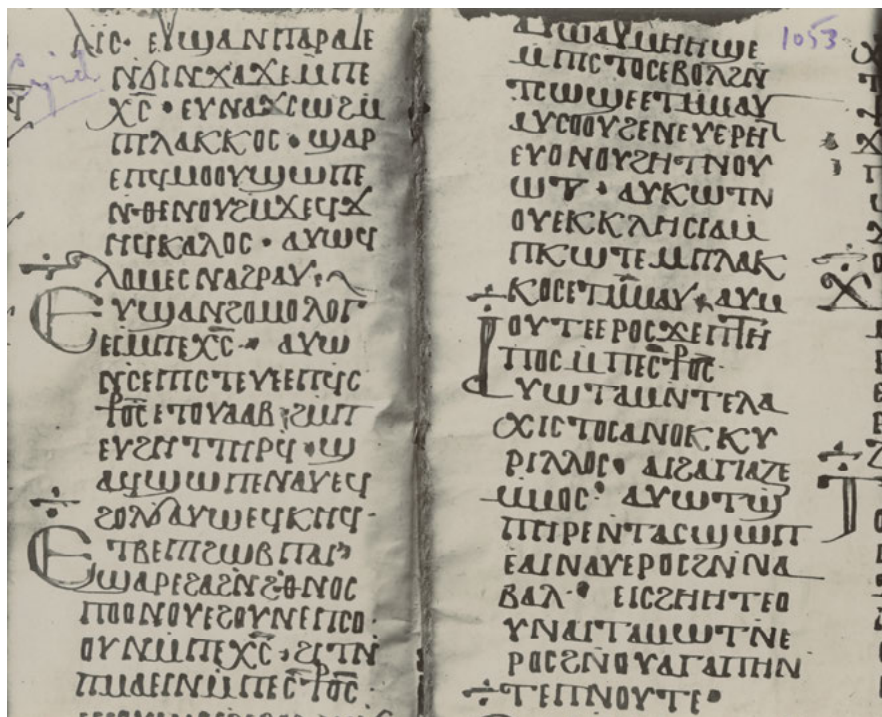 ⲗⲓⲥ· ⲉⲩϣⲁⲛⲡⲁⲣⲁⲇⲉ
ⲛϭⲓⲛϫⲁϫⲉⲙⲡⲉ
ⲭⲥ · ⲉⲩⲛⲁϫⲓⲥⲱϩⲙ
ⲡⲗⲁⲕⲕⲟⲥ · ϣⲁⲣ
ⲉⲡϥⲙⲟⲟⲩϣⲱⲡⲉ
ⲛⲑⲉⲛⲟⲩϩⲓϫⲉϥϫ
ⲏϥⲕⲁⲗⲟⲥ · ⲁⲩⲱϥ
ⲗⲟⲙⲉⲥⲛⲁϩⲣⲁⲩ·
ⲉⲩϣⲁⲛϩⲟⲙⲟⲗⲟⲅ
ⲉⲓⲙⲡⲉⲭⲥ̅ · ⲁⲩⲱ
ⲛⲥⲉⲡⲓⲥⲧⲉⲩⲉⲉⲡϥⲥ
ⲣⲟⲥ̅ⲉⲧⲟⲩⲁⲁⲃ ϩⲙⲡ
ⲉⲩϩⲏⲧⲧⲏⲣϥ · ϣ
ⲁϥϣⲱⲡⲉⲛⲁⲩⲉϥ
ϩⲟⲗϭⲁⲩⲱⲉϥⲕⲏϥ·
ⲉⲧⲃⲉⲡϩⲱⲃⲡⲁⲓ
ϣⲁⲣⲉϩⲁϩⲛϩⲉⲑⲛⲟⲥ
ⲡⲟⲟⲛⲟⲩⲉϩⲟⲩⲛⲉⲡⲥⲟ
ⲟⲩⲛⲙⲡⲉⲭⲥ̅ · ϩⲓⲧⲛ
ⲡⲙⲁⲉⲓⲛⲙⲡⲉⲥ̅ⲣⲟⲥ̅·
1053
ⲁⲩⲱⲁⲩⲙⲏⲏϣⲉ
ⲙⲡⲓⲥⲧⲟⲥⲉⲃⲟⲗϩⲛ
ⲧⲥⲱϣⲉⲉⲧⲙⲙⲁⲩ
ⲁⲩⲥⲟⲟⲩϩⲉⲛⲉⲩⲉⲣⲏ
ⲉⲩⲟⲛⲟⲩϩⲏⲧⲛⲟⲩ
ⲱⲧ · ⲁⲩⲕⲱⲧⲛ
ⲟⲩⲉⲕⲕⲗⲏⲥⲓⲁⲙ
ⲡⲕⲱⲧⲉⲙⲡⲗⲁⲕ
ⲕⲟⲥⲉⲧⲙⲙⲁⲩ ⲁⲩⲙ
ⲟⲩⲧⲉⲉⲣⲟⲥϫⲉⲡⲧⲏ
ⲡⲟⲥⲙⲡⲉⲥ̅ⲣⲟⲥ̅·
ⲁⲩⲱⲧⲁⲙⲛⲧⲉⲗⲁ
ⲭⲓⲥⲧⲟⲥⲁⲛⲟⲕⲕⲩ
ⲣⲓⲗⲗⲟⲥ· ⲁⲓϩⲁⲅⲓⲁⲍⲉ
ⲙⲙⲟⲥ· ⲁⲩⲱⲧϣ
ⲡⲏⲣⲉⲛⲧⲁⲥϣⲱⲡ
ⲉⲁⲓⲛⲁⲩⲉⲣⲟⲥϩⲛⲛⲁ
ⲃⲁⲗ· ⲉⲓⲥϩⲏⲏⲧⲉⲟ
ⲩⲛⲁⲓⲧⲁⲙⲱⲧⲛⲉ
ⲣⲟⲥϩⲛⲟⲩⲁⲅⲁⲡⲏⲛ
ⲧⲉⲡⲛⲟⲩⲧⲉ·